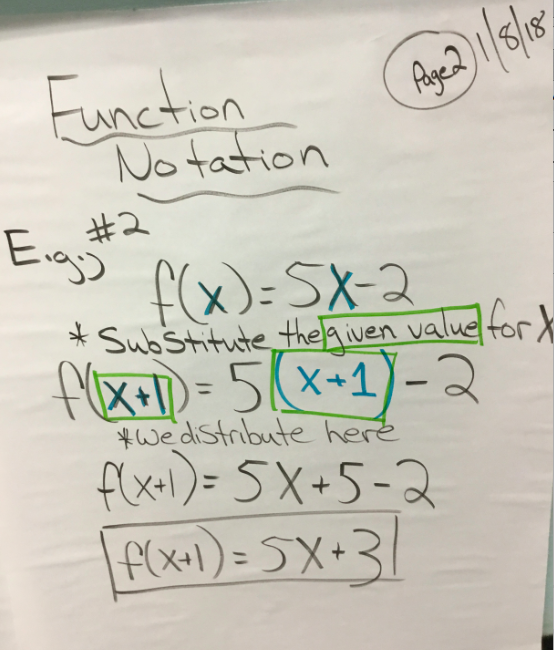 Page 2
1/8/18
Function
Notation
E.g.;) #2
f(x) = 5x-2
* Substitute the given value for x
f(x+1) = 5(x+1) - 2
*we distribute here
f(x+1) = 5x+5-2
f(x+1) = 5x+3